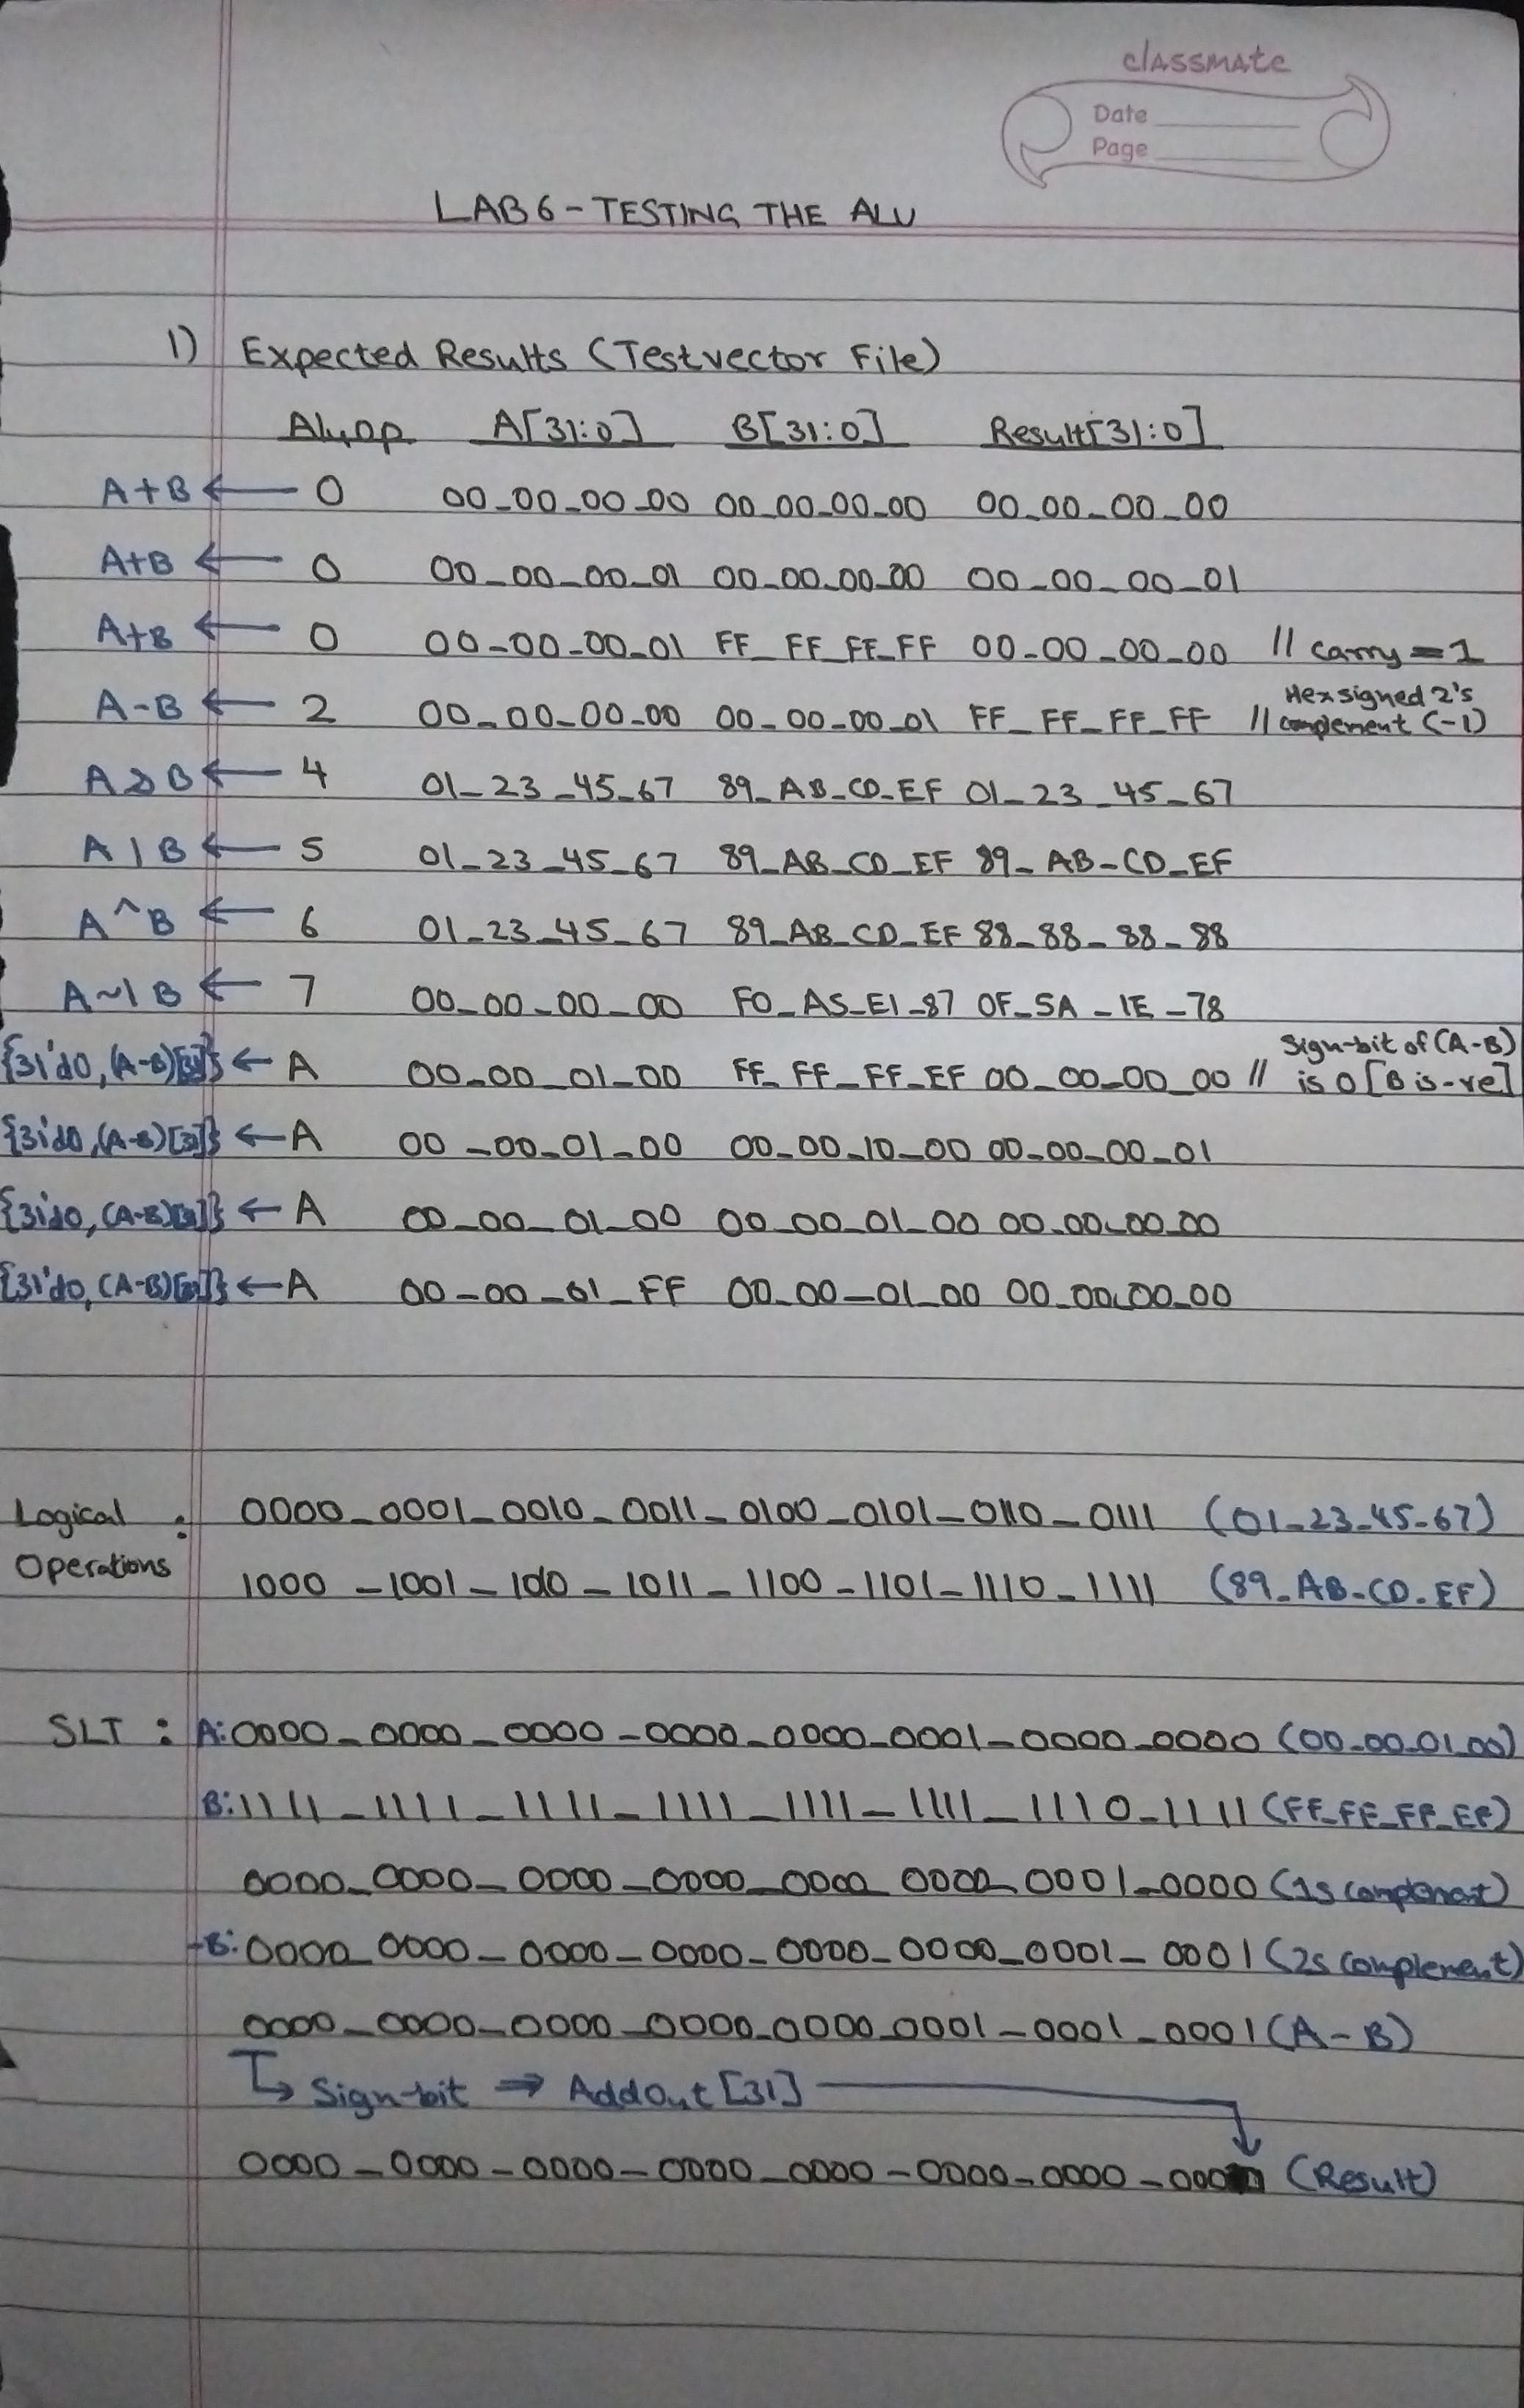 classmate
Date
Page
LAB 6 - TESTING THE ALU
1) Expected Results (Testvector File)
AluOp A[31:0] B[31:0] Result[31:0]
A+B ← 0 00_00_00_00 00_00_00_00 00_00_00_00
A+B ← 0 00_00_00_01 00_00_00_00 00_00_00_01
A+B ← 0 00_00_00_01 FF_FF_FF_FF 00_00_00_00 // carry = 1
A-B ← 2 00_00_00_00 00_00_00_01 FF_FF_FF_FF // Hex signed 2's complement (-1)
A & B ← 4 01_23_45_67 89_AB_CD_EF 01_23_45_67
A | B ← 5 01_23_45_67 89_AB_CD_EF 89_AB_CD_EF
A ^ B ← 6 01_23_45_67 89_AB_CD_EF 88_88_88_88
A ~| B ← 7 00_00_00_00 F0_A5_E1_87 0F_5A_1E_78
{31'd0, (A-B)[31]} ← A 00_00_01_00 FF_FF_FF_EF 00_00_00_00 // Sign-bit of (A-B) is 0 [B is -ve]
{31'd0, (A-B)[31]} ← A 00_00_01_00 00_00_10_00 00_00_00_01
{31'd0, (A-B)[31]} ← A 00_00_01_00 00_00_01_00 00_00_00_00
{31'd0, (A-B)[31]} ← A 00_00_01_FF 00_00_01_00 00_00_00_00
Logical Operations : 0000_0001_0010_0011_0100_0101_0110_0111 (01_23_45_67)
1000_1001_1010_1011_1100_1101_1110_1111 (89_AB_CD_EF)
SLT : A: 0000_0000_0000_0000_0000_0001_0000_0000 (00_00_01_00)
B: 1111_1111_1111_1111_1111_1111_1110_1111 (FF_FF_FF_EF)
0000_0000_0000_0000_0000_0000_0001_0000 (1s complement)
-B: 0000_0000_0000_0000_0000_0000_0001_0001 (2s complement)
0000_0000_0000_0000_0000_0001_0001_0001 (A-B)
↳ Sign-bit ⇒ AddOut[31]
0000_0000_0000_0000_0000_0000_0000_000 (Result)